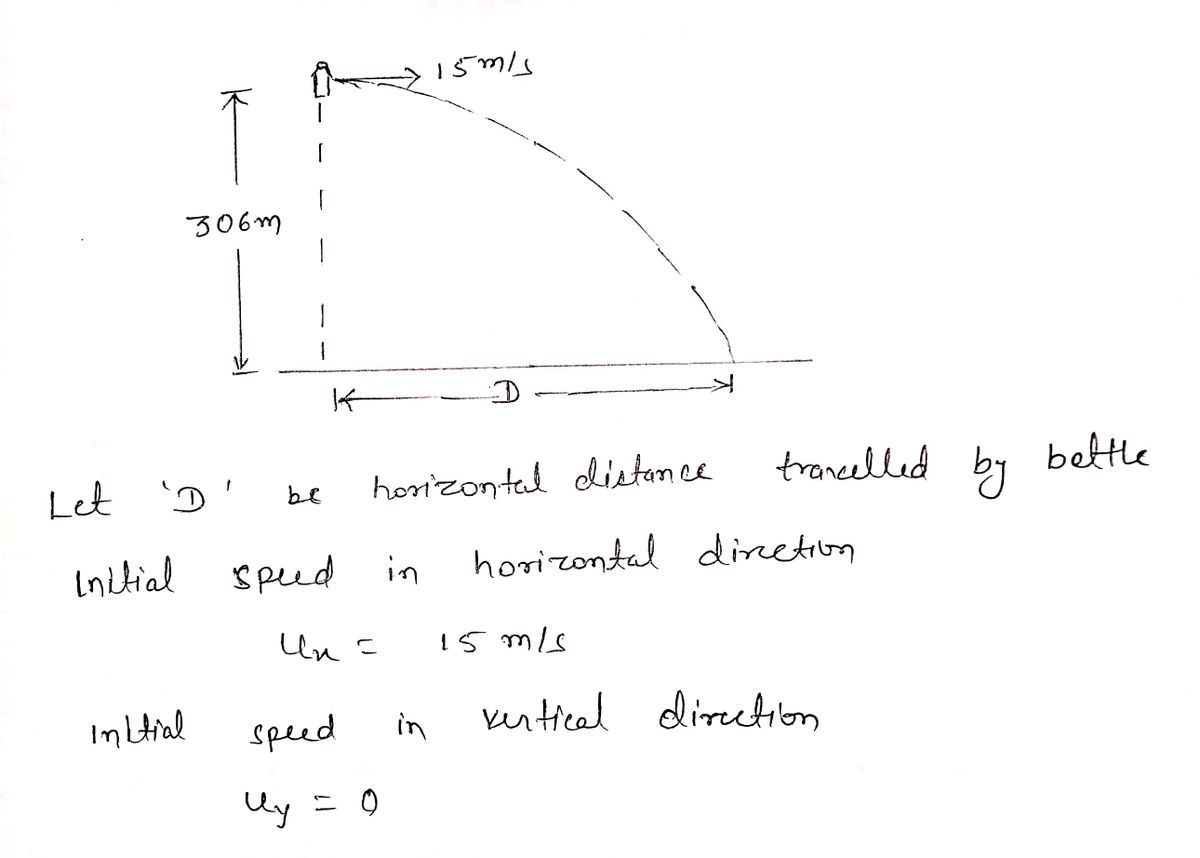 15 m/s
306m
D
Let 'D' be horizontal distance travelled by bottle
Initial speed in horizontal direction
ux = 15 m/s
initial speed in vertical direction
uy = 0